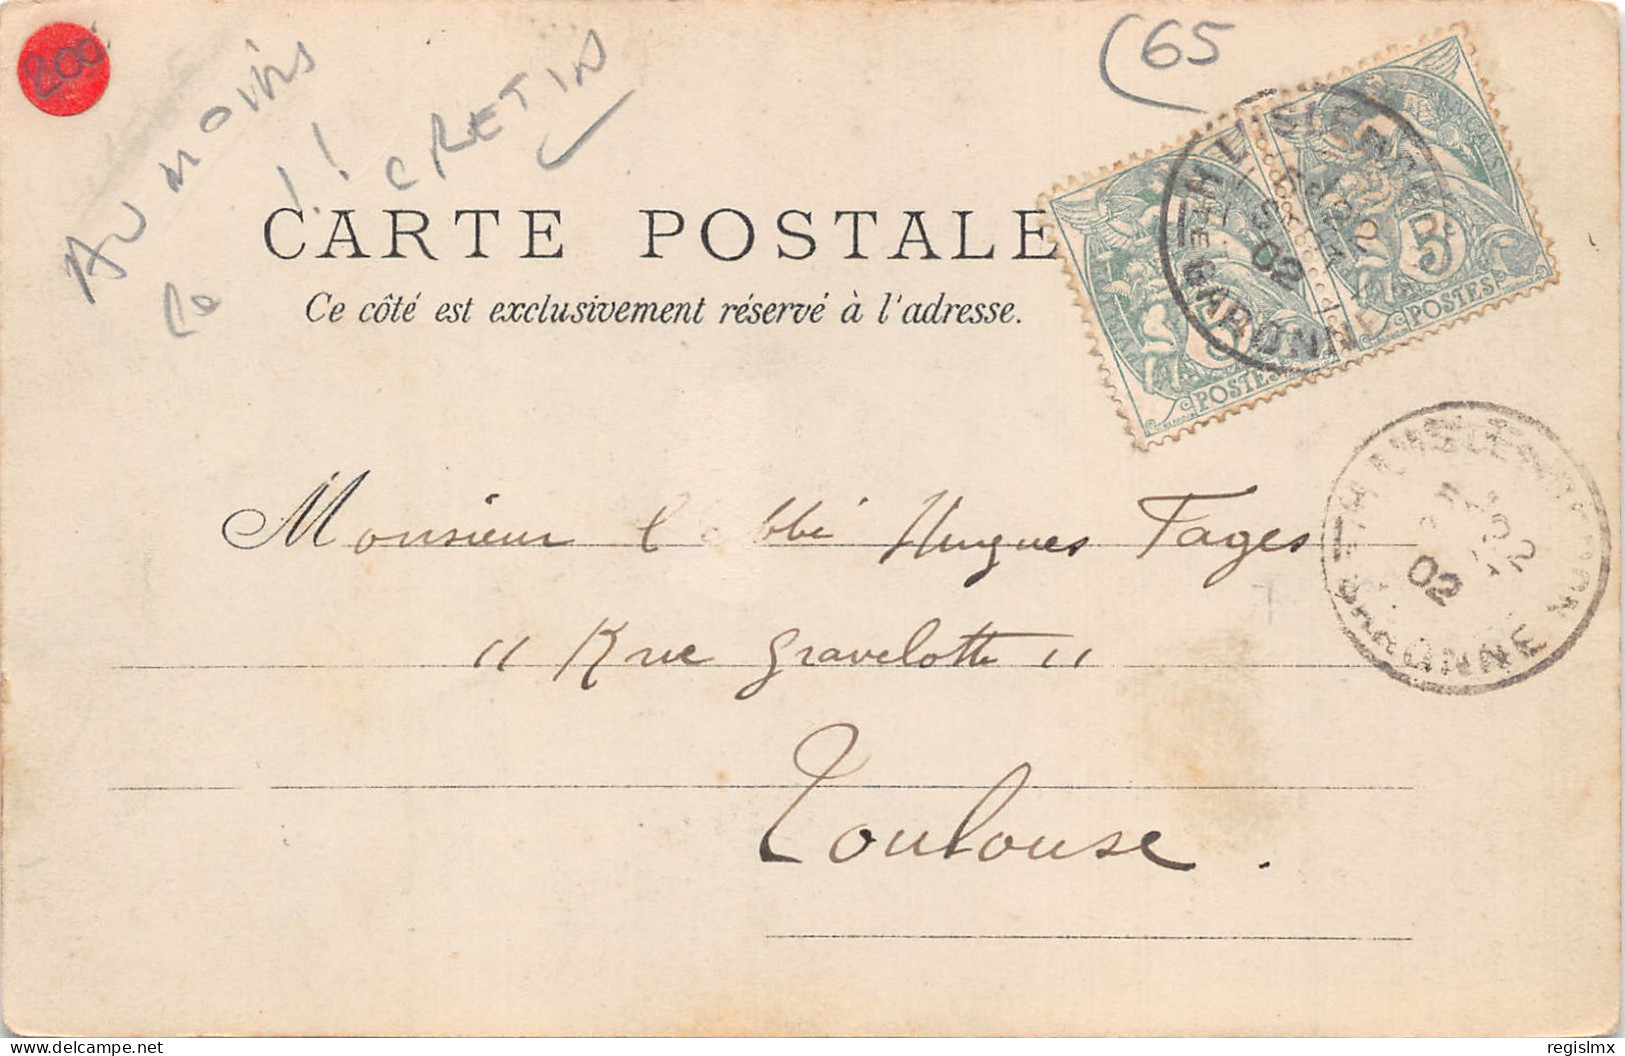 200
(65
Au moins
le !! CRETIN
CARTE POSTALE
Ce côté est exclusivement réservé à l'adresse.
POSTES
POSTES
5
L'ISLE
Hte GARONNE
02
02
GARONNE
Monsieur l'abbé Hugues Fages
" Rue Gravelotte "
Toulouse.
www.delcampe.net
regislmx